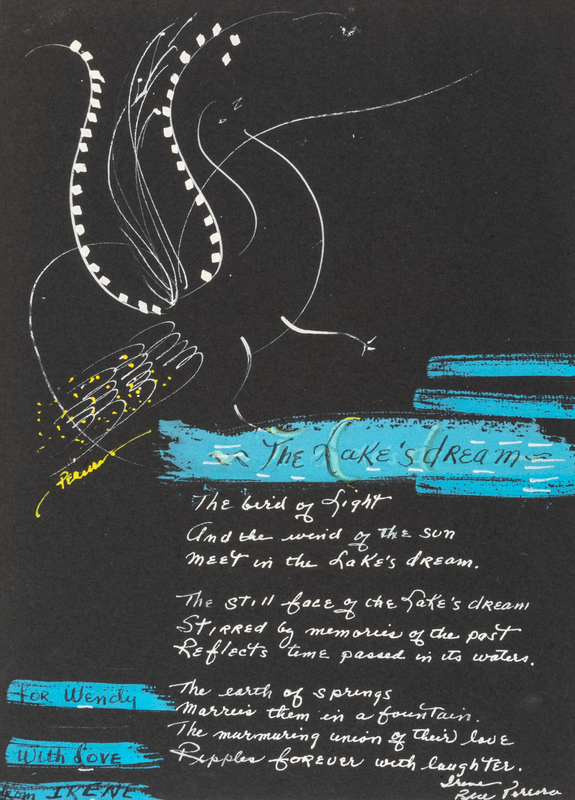 PEREIRA
The Lake's dream
The bird of Light
And the wind of the sun
meet in the Lake's dream.
The still face of the Lake's dream
Stirred by memories of the past
Reflects time passed in its waters.
The earth of springs
Marries them in a fountain.
The murmuring union of their love
Ripples forever with laughter.
Irene
Rice Pereira
FOR Wendy
With Love
FROM IRENE